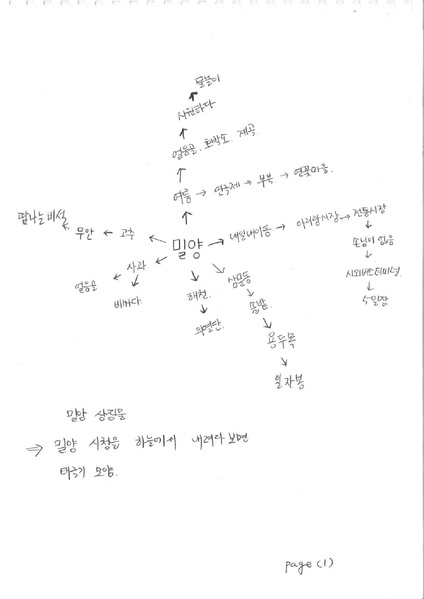 물놀이
↑
시원하다
↑
얼음골. 호박소. 계곡
↑
여름 → 연극제 → 부북 → 연꽃마을.
↑
땀나는 비석 ← 무안 ← 고추 ← 밀양 → 내일내이동 → 아리랑시장 → 전통시장
↓
손님이 없음
↓
시외버스터미널
↓
5일장
얼음골 ← 사과 ←
↓
비싸다.
해천
↓
의열단
삼문동
↓
솔밭
↓
용두목
↓
일자봉
밀양 상징물
⇒ 밀양 시청을 하늘에서 내려다 보면
태극기 모양.
page (1)